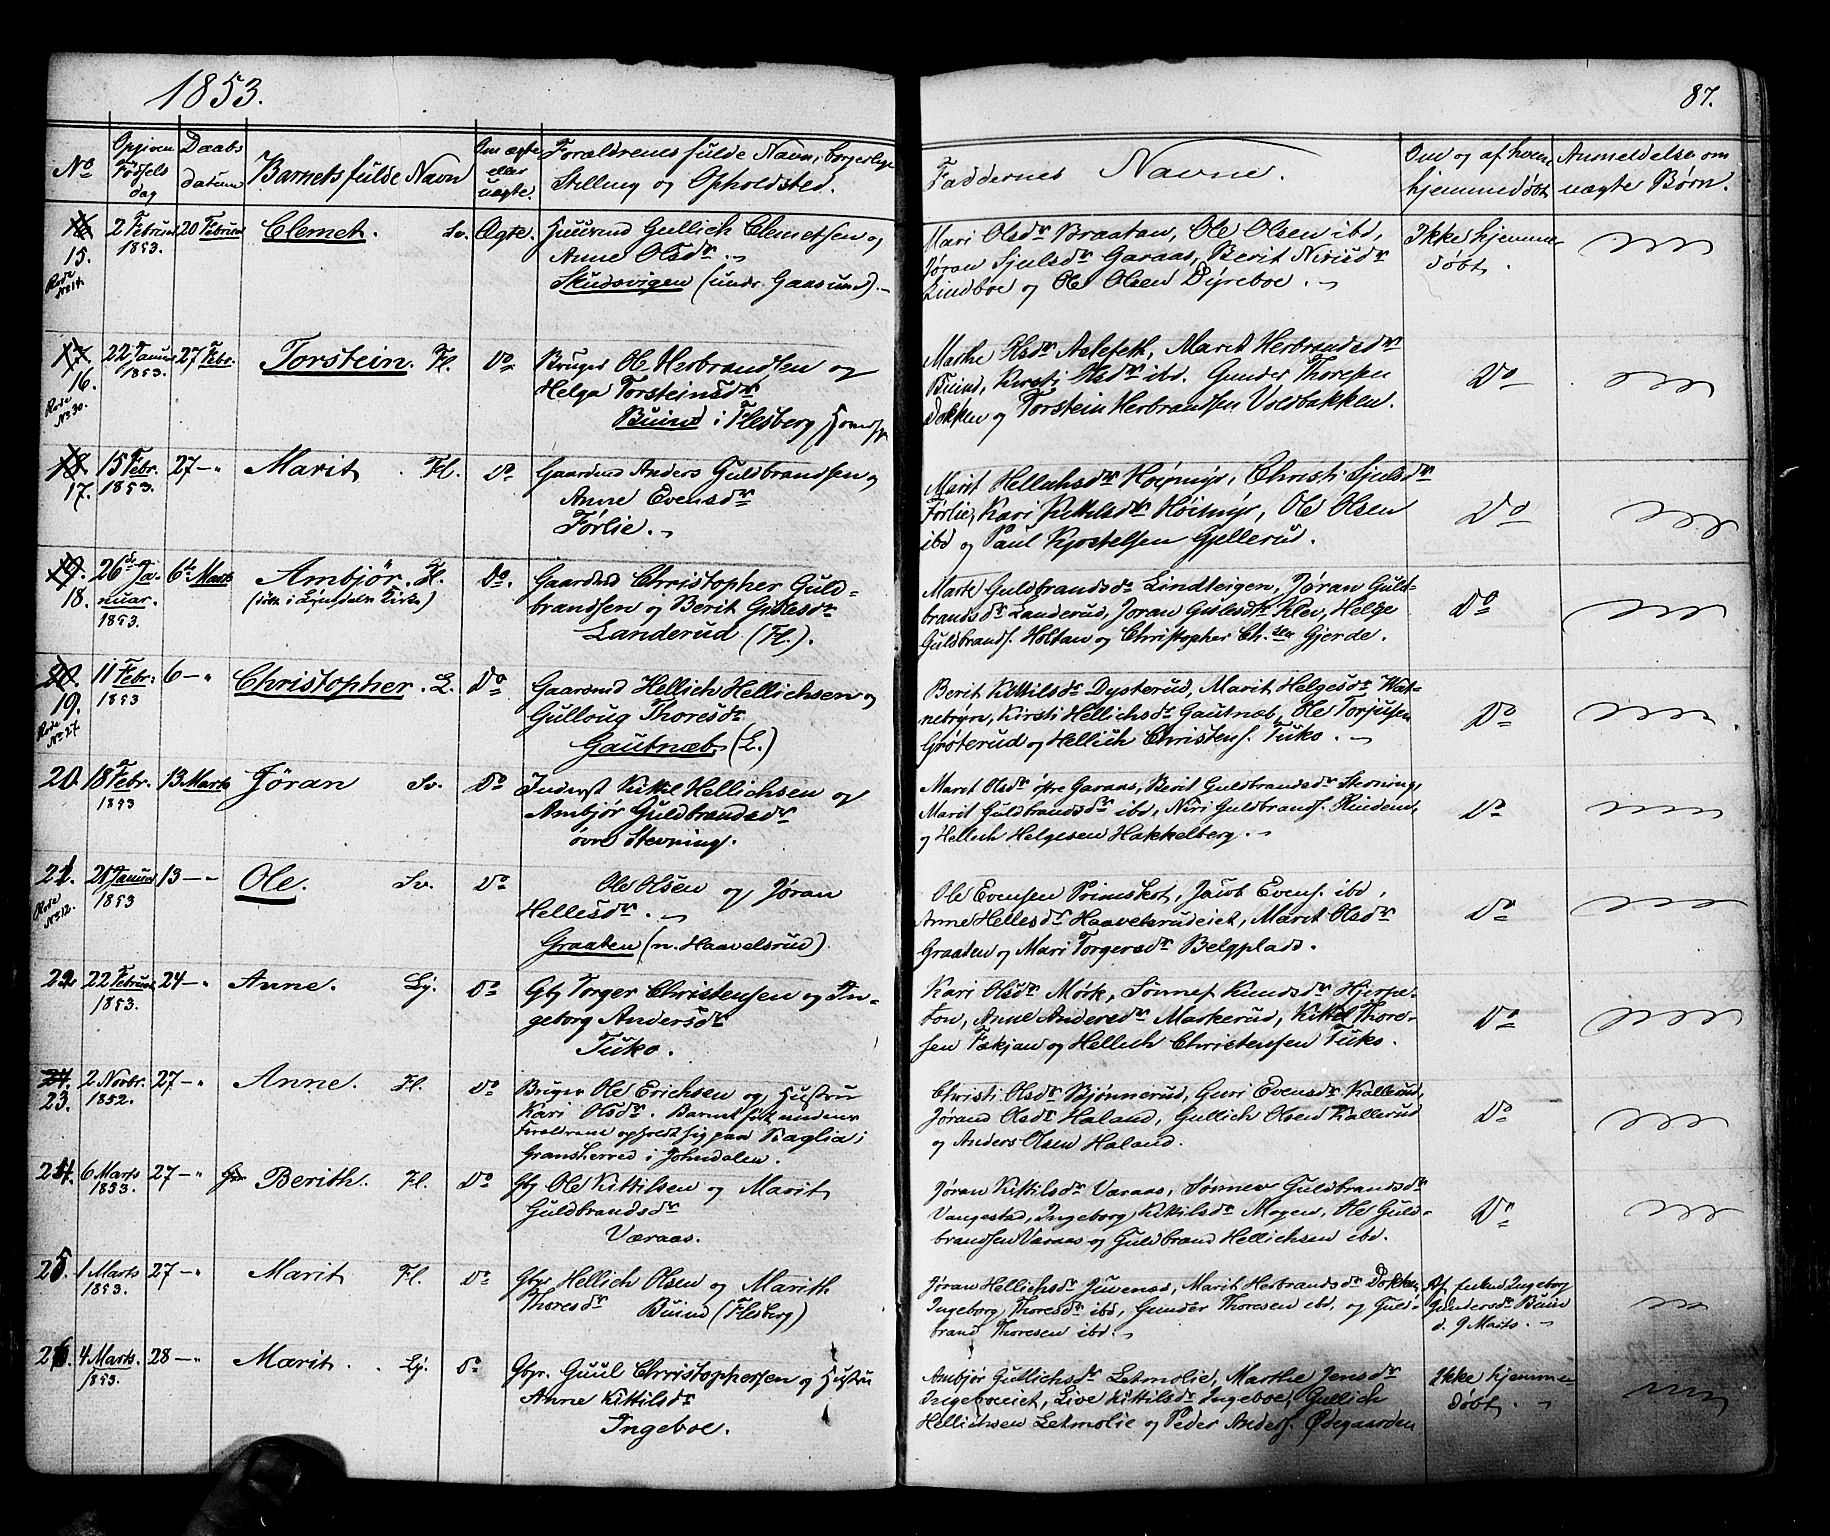 1853.
87.
No
Opgiven Fødsels dag
Daabs datum
Barnets fulde Navn
Om ægte eller uægte.
Forældrenes fulde Navn, borgerlige Stilling og Opholdsted.
Faddernes Navne.
Om og af hvem hjemmedøbt
Anmeldelse om uægte Børn.
15. 2 Februar 1853. 20 Februar Clemet. Sv. Ægte. Huusmd Gullich Clemetsen og
Anne Olsdr
Skudsvigen (under Gaasund).
Mari Olsdr Braatan, Ole Olsen ibd,
Jøran Sjulsdr Garaas, Berit Nirisdr
Lindboe og Ole Olsen Dyreboe.
Ikke hjemme-
døbt.
16. 22 Januar 1853. 27 Febr. Torstein. Fl. Do Bruger Ole Herbrandsen og
Helga Torsteinsdr
Buind i Flesberg Hovedsg
Marthe Olsdr Aslefeth, Marit Herbrandsdr
Buind, Kirsti Olsdr ibd. Gunder Thoresen
Dokken og Torstein Herbrandsen Voldbakken.
Do
17. 15 Febr. 1853. 27 Marit Fl. Do Gaardmd Anders Guldbrandsen og
Anne Evensdr
Førlie.
Marit Hellichsdr Høimyr, Christi Sjulsdr
Førlie, Kari Kittilsdr Høimyr, Ole Olsen
ibd og Paul Kjostelsen Gjellerud.
Do
18. 26de Januar. 1853. 6te Marts Ambjør. Fl. Do. Gaardmd Christopher Guld-
(døbt i Lyngdals Kirke)
brandsen og Berit Gislesdr
Landerud (Fl.).
Marte Guldbrandsdr Lindteigen, Jøran Guld-
brandsdr Landerud, Joran Gislesdr Klev, Helge
Guldbrands. Holtan og Christopher Ch.sen Gjerde.
Do
19. 11 Febr. 1853 6 Christopher. L. Do Gaardmd Hellich Hellichsen og
Gulloug Thoresdr
Gautnæb (L.)
Berit Kittilsdr Dysterud, Marit Helgesdr Wat-
nebryn, Kirsti Hellichsdr Gautnæb, Ole Torjusen
Grøterud og Hellich Christens. Tuko.
Do
20. 18 Febr. 1853 13 Marts Jøran Sv. Do Inderst Kittil Hellichsen og
Ambjør Guldbrandsdr
øvre Stevning.
Maret Olsdr øfre Garaas, Berit Guldbrandsdr Stevning,
Marit Guldbrandsdr ibd, Niri Guldbrands. Rinden,
og Hellich Helgesen Hakkelberg.
Do
21. 21 Januar 1853 13 Ole. Sv. Do Ole Olsen og Jøran
Hellesdr.
Graaten (n. Haavelsrud).
Ole Evensen Primskot, Jacob Evens. ibd,
Anne Hellesdr Haavelsrudeiet, Marit Olsdr
Graaten og Mari Torgersdr Belgplads.
Do
22 22 Februar 1853. 24 Anne. Ly. Do Gbr Torger Christensen og In-
geborg Andersdr
Tuko.
Kari Olsdr Mørk, Sønnef Knudsdr Hjerpe-
ton, Anne Andersdr Markerud, Kittil Thore-
sen Fækjan og Hellich Christensen Tuko.
Do
23. 2 Novbr. 1852. 27 Anne. Fl. Do Bruger Ole Erichsen og Hustru
Kari Olsdr. Barnet født medens
Forældrene opholdt sig paa Baglia i
Gransherred i Johndalen.
Christi Olsdr Bjønnerud, Guri Evensdr Kallerud,
Jørand Olsdr Haland, Gullich Olsen Kallerud
og Anders Olsen Haland.
Do
24. 6 Marts 1853. 27 Berith. Fl. Do Gbr Ole Kittilsen og Marit
Guldbrandsdr
Væraas.
Jøran Kittilsdr Væraas, Sønnev Guldbrandsdr
Vangestad, Ingeborg Kittilsdr Mogen, Ole Guld-
brandsen Væraas og Guldbrand Hellichsen ibd.
Do
25. 1 Marts 1853. 27 Marit Fl. Do Gbr Hellich Olsen og Marith
Thoresdr Buind (Flesberg)
Jøran Hellichsdr Juvensd, Marit Herbrandsdr Dokken,
Ingeborg Thoresdr ibd, Gunder Thoresen ibd, og Guld-
brand Thoresen ibd.
Af Ingeborg
Gundersdr Buin
d. 9 Marts.
26. 4 Marts. 1853. 28 Marit. Ly. Do Gbr. Guul Christophersen og Hustru
Anne Kittilsdr
Ingeboe.
Ambjør Gullichsdr Letmolie, Marthe Jensdr
Ingeboeiet, Live Kittilsdr Ingeboe, Gullich
Hellichsen Letmolie og Peder Anders. Ødegaarden
Ikke hjemme-
døbt.